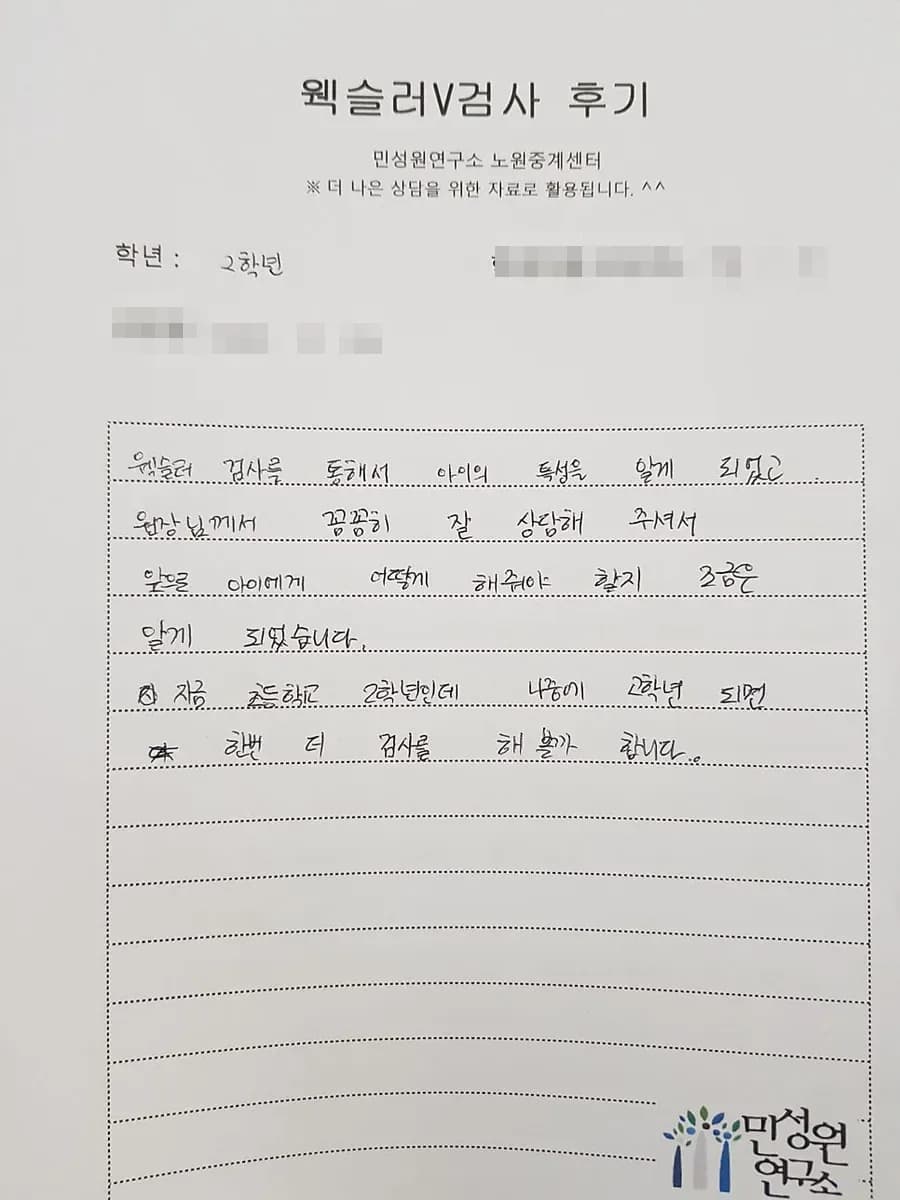 웩슬러V검사 후기
민성원연구소 노원중계센터
※ 더 나은 상담을 위한 자료로 활용됩니다. ^^
학년 : 2학년
웩슬러 검사를 통해서 아이의 특성을 알게 되었고
원장님께서 꼼꼼히 잘 상담해 주셔서
앞으로 아이에게 어떻게 해줘야 할지 조금은
알게 되었습니다.
지금 초등학교 2학년인데 나중에 고학년 되면
한번 더 검사를 해 볼까 합니다.
민성원
연구소